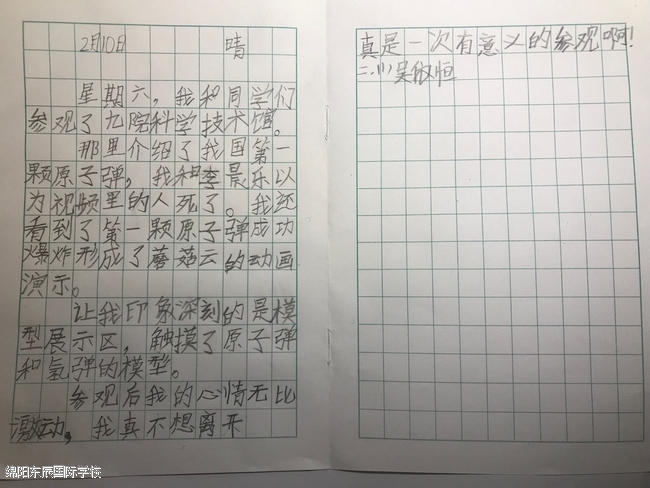 2月10日 晴
星期六，我和同学们
参观了九院科学技术馆。
那里介绍了我国第一
颗原子弹，我和李晨乐以
为视频里的人死了。我还
看到了第一颗原子弹成功
爆炸形成了蘑菇云的动画
演示。
让我印象深刻的是模
型展示区，触摸了原子弹
和氢弹的模型。
参观后我的心情无比
激动，我真不想离开
真是一次有意义的参观啊！
二.(1)吴俶恒
绵阳东辰国际学校